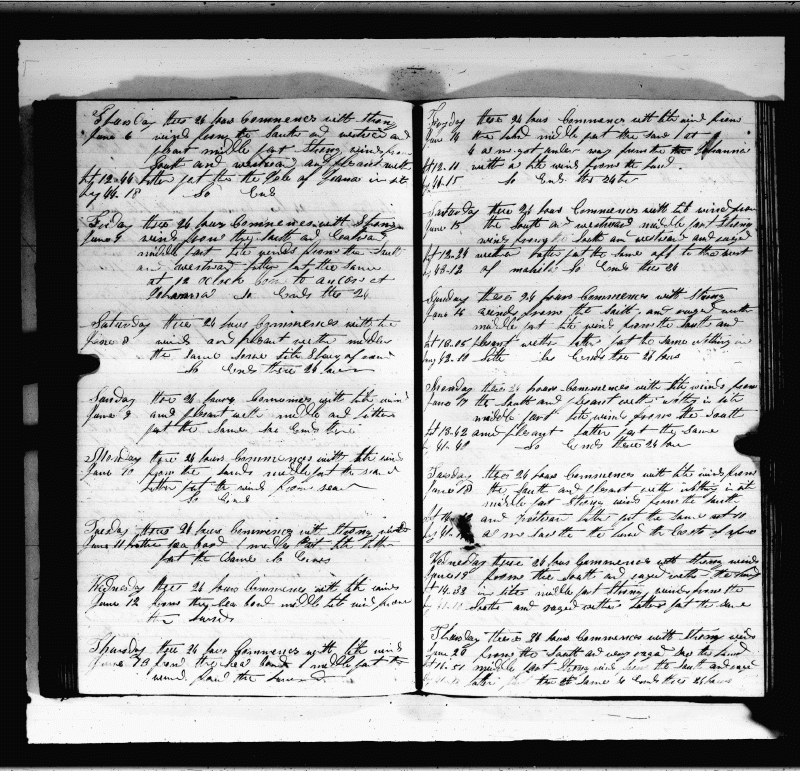 Thursday thes 24 hours Commences with strong
June 6 wind from the South and westard and
plesant middle part Strong winds from
South and westard and plesant with
lat 12-44 latter part the the Isle of Joana in site
Lg 44.18 So Ends
Friday these 24 hours Commences with Strong
June 7 winds from the South and Eastward
middle part lite winds from the South
and westward latter part the same
at 12 Oclock Com to ancor at
Johanna So Ends the 24
Saturday these 24 hours Commences with lite
June 8 winds and plesant wether middle
the same
So Ends these 24 hours
Sunday these 24 hours Commences with lite wind
June 9 and plesant weth middle and latter
part the same So Ends these
Monday these 24 hours Commences with lite wind
June 10 from the land middle part the sea
latter part the wind from sea
So Ends
Tuesday these 24 hours Commences with Strong winds
June 11 middle part lite latter
part the Same So Ends
Wednesday these 24 hours Commences with lite winds
June 12 from the Sea bord middle lite wind from
the
Thursday these 24 hours Commences with lite wind
June 13 from the sea bord middle part the
wind from the
Fryday these 24 hours Commences with lite wind from
June 14 the land middle part the same at
4 a m got under way from the Johanna
lat 12-11 with a lite wind from the land
Lg 44-15 So Ends the 24
Saturday these 24 hours Commences with lite wind from
June 15 the South and westward middle part Strong
winds from the South an westward and raged
lat 13-24 wether latter part the same off to the west
Lg 43-12 of So Ends these 24
Sunday these 24 hours Commences with Strong
June 16 winds from the South and raged wether
middle part lite wind from the South and
lat 13.05 plesant wether latter part the same nothing in
Lg 42-10 Site So Ends these 24 hours
Monday these 24 hours Commences with lite winds from
June 17 the South and plesant wether nothing in site
middle part lite wind from the South
lat 13-42 and plesant latter part the same
So Ends these 24 hours
Tuesday these 24 hours Commences with lite winds from
June 18 the South and plesant weth nothing in sit
middle part Strong winds from the South
and latter part the same at 10
a m saw the the land the Coast of
Wednesday these 24 hours Commences with Strong winds
June 19 from the South and raged wether the land
lat 14.38 in site middle part Strong winds from the
South and raged wether latter part the same
Thursday these 24 hours Commences with Strong winds
June 20 from the South and very raged the land
middle part Strong winds from the South and raged
latter part the same So Ends these 24 hours